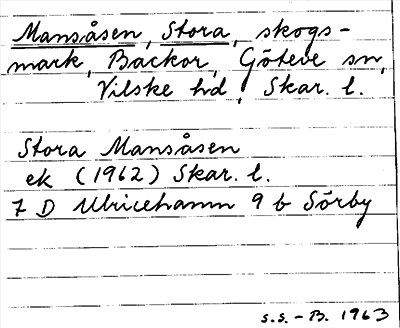 Mansåsen, Stora, skogs-
mark, Backor, Göteve sn,
Vilske hd, Skar. l.
Stora Mansåsen
ek (1962) Skar. l.
7 D Ulricehamn 9 b Sörby
s.s. - B. 1963